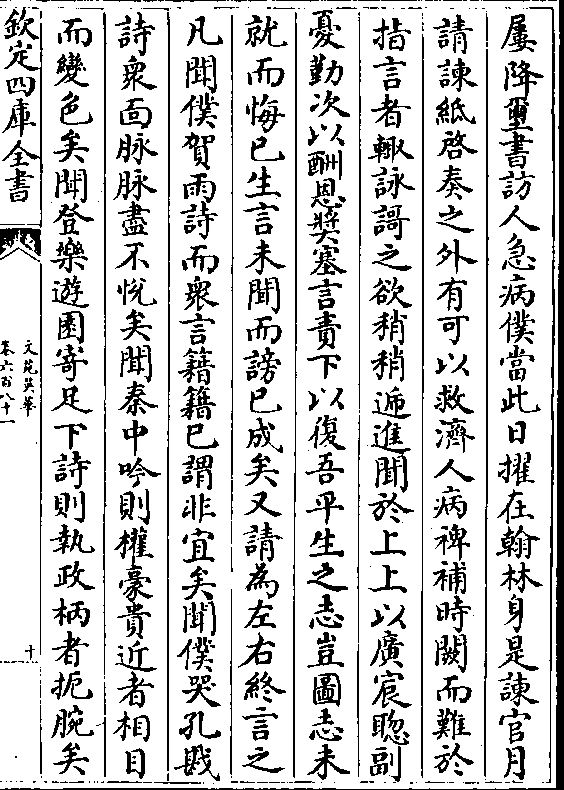 屢降璽書訪人急病僕當此日擢在翰林身是諫官月
請諫紙啓奏之外有可以救濟人病裨補時闕而難於
指言者輙詠謌之欲稍稍逓進聞於上上以廣宸聦副
憂勤次以酬恩奬塞言責下以復吾平生之志豈圖志未
就而悔已生言未聞而謗已成矣又請為左右終言之
凡聞僕賀雨詩而衆言籍籍已謂非宜矣聞僕哭孔戡
詩衆面脉脉盡不悦矣聞秦中吟則權豪貴近者相目
而變色矣聞登樂遊園寄足下詩則執政柄者扼腕矣
欽定四庫全書
文苑英華
卷六百八十一
十